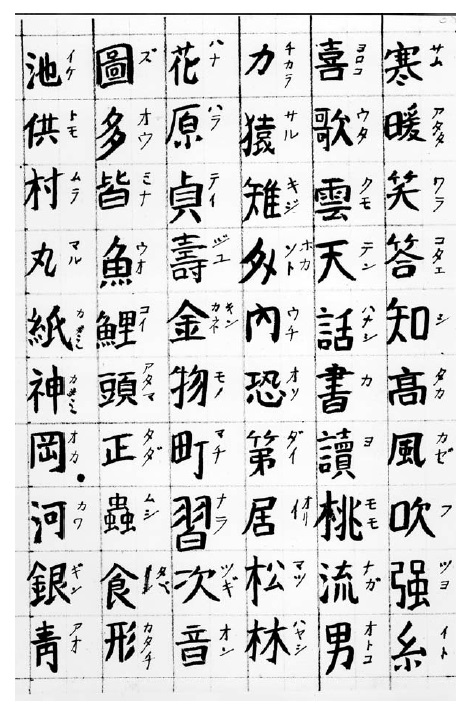 寒サム 暖アタタ 笑ワラ 答コタエ 知シ 高タカ 風カゼ 吹フ 强ツヨ 糸イト
喜ヨロコ 歌ウタ 雲クモ 天テン 話ハナシ 書カ 讀ヨ 桃モモ 流ナガ 男オトコ
力チカラ 猿サル 雉キジ 外ホカソト 內ウチ 恐オソ 第ダイ 居オリ 松マツ 林ハヤシ
花ハナ 原ハラ 貞テイ 壽ジユ 金キンカネ 物モノ 町マチ 習ナラ 次ツギ 音オン
圖ズ 多オウ 皆ミナ 魚ウオ 鯉コイ 頭アタマ 正タダ 蟲ムシ 食タベ 形カタチ
池イケ 供トモ 村ムラ 丸マル 紙カミ 神カミ 岡オカ 河カワ 銀ギン 靑アオ